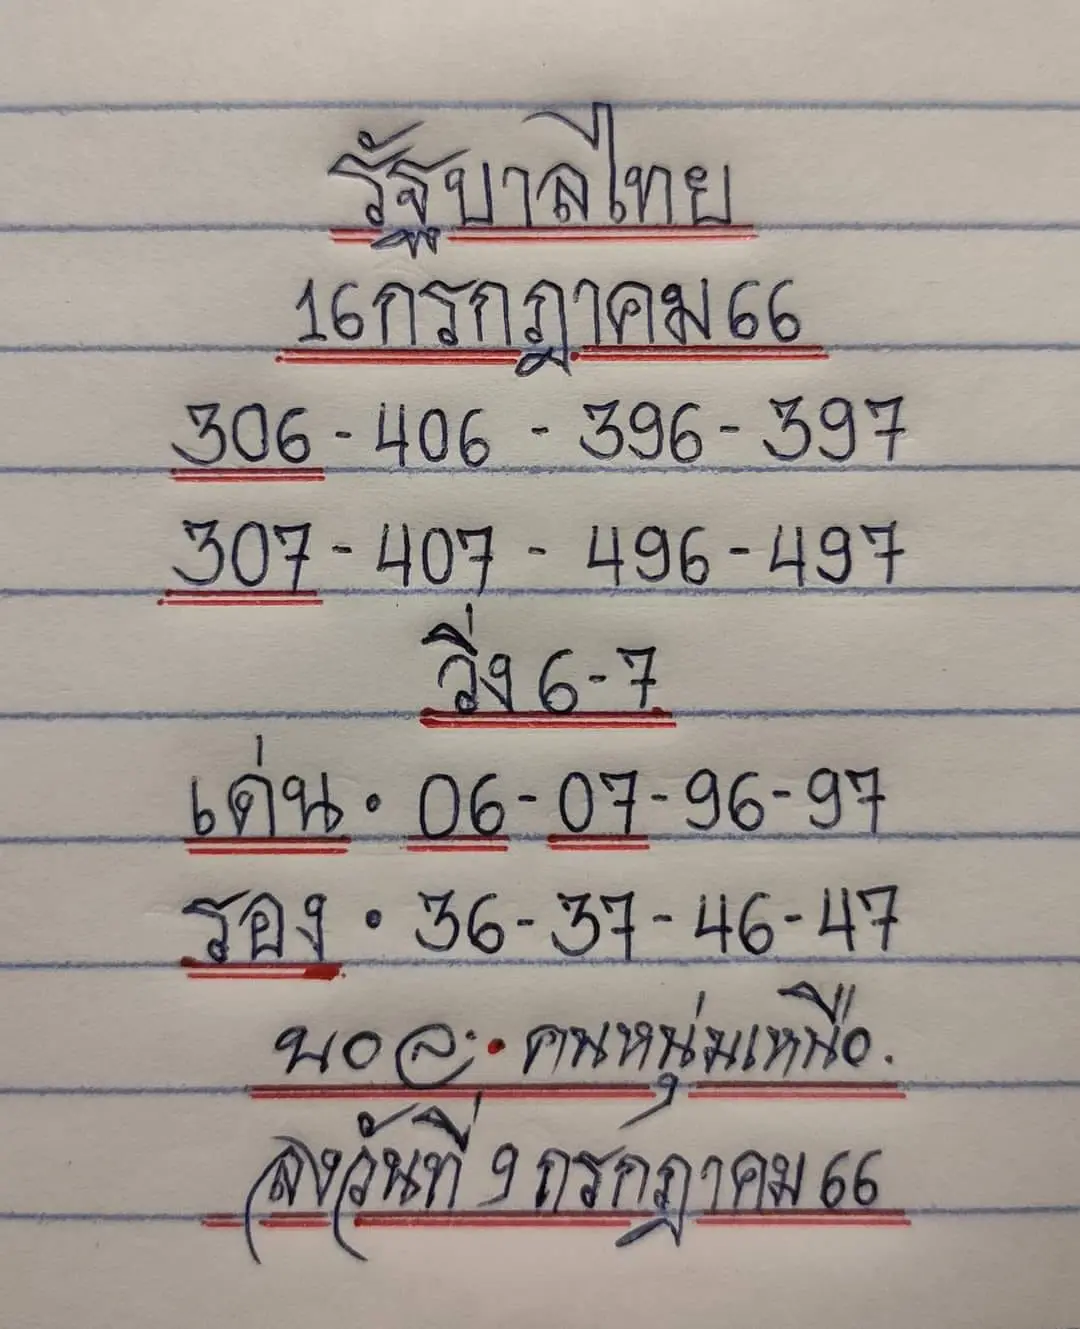 รัฐบาลไทย
16กรกฎาคม66
306-406-396-397
307-407-496-497
วิ่ง 6-7
เด่น • 06-07-96-97
รอง • 36-37-46-47
คนหนุ่มเหนือ.
ลงวันที่ 9 กรกฎาคม 66